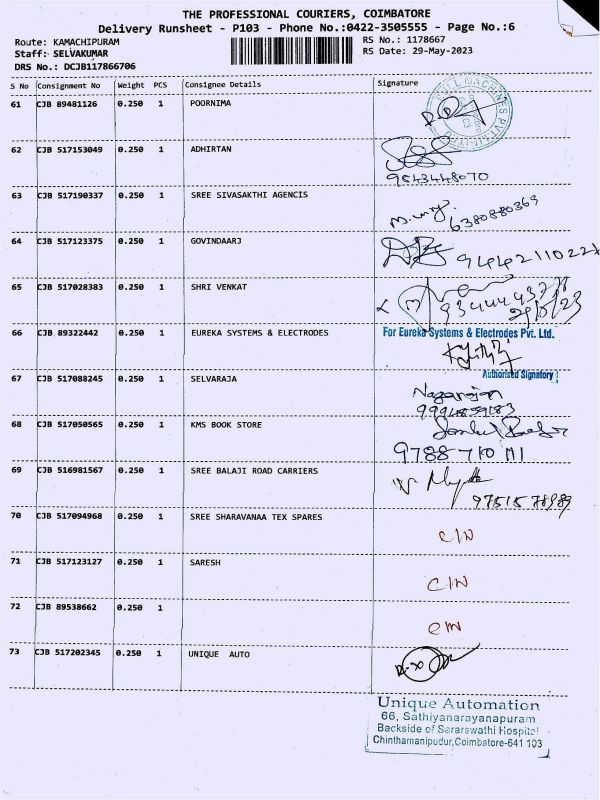 THE PROFESSIONAL COURIERS, COIMBATORE
Delivery Runsheet - P103 - Phone No.:0422-3505555 - Page No.:6
Route: KAMACHIPURAM
RS No.: 1178667
Staff: SELVAKUMAR
RS Date: 29-May-2023
DRS No.: DCJB117866706
S No Consignment No Weight PCS Consignee Details Signature
61 CJB 89481126 0.250 1 POORNIMA
62 CJB 517153049 0.250 1 ADHIRTAN
9543448070
63 CJB 517190337 0.250 1 SREE SIVASAKTHI AGENCIS
6380880369
64 CJB 517123375 0.250 1 GOVINDAARJ
65 CJB 517028383 0.250 1 SHRI VENKAT
66 CJB 89322442 0.250 1 EUREKA SYSTEMS & ELECTRODES
For Eureka Systems & Electrodes Pvt. Ltd.
Authorised Signatory
67 CJB 517088245 0.250 1 SELVARAJA
Nagarajan
68 CJB 517050565 0.250 1 KMS BOOK STORE
69 CJB 516981567 0.250 1 SREE BALAJI ROAD CARRIERS
70 CJB 517094968 0.250 1 SREE SHARAVANAA TEX SPARES
C/N
71 CJB 517123127 0.250 1 SARESH
C/N
72 CJB 89538662 0.250 1
73 CJB 517202345 0.250 1 UNIQUE AUTO
Unique Automation
66, Sathiyanarayanapuram
Backside of Sararswathi Hospital
Chinthamanipudur, Coimbatore-641 103